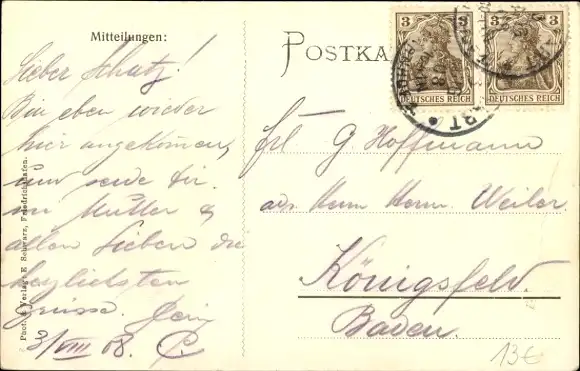 Mitteilungen:
Lieber Schatz!
Bin eben wieder
hier angekommen,
und sende Dir,
Mutter &
allen Lieben die
herzlichsten
Grüsse. Dein
3/VIII 08. C.
POSTKA
3 3
DEUTSCHES REICH DEUTSCHES REICH
Frl. G. Hoffmann
adr. Herrn Herm. Weiler
Königsfeld.
Baden.
13€
Phot. & Verlag E. Schwarz, Friedrichshafen.